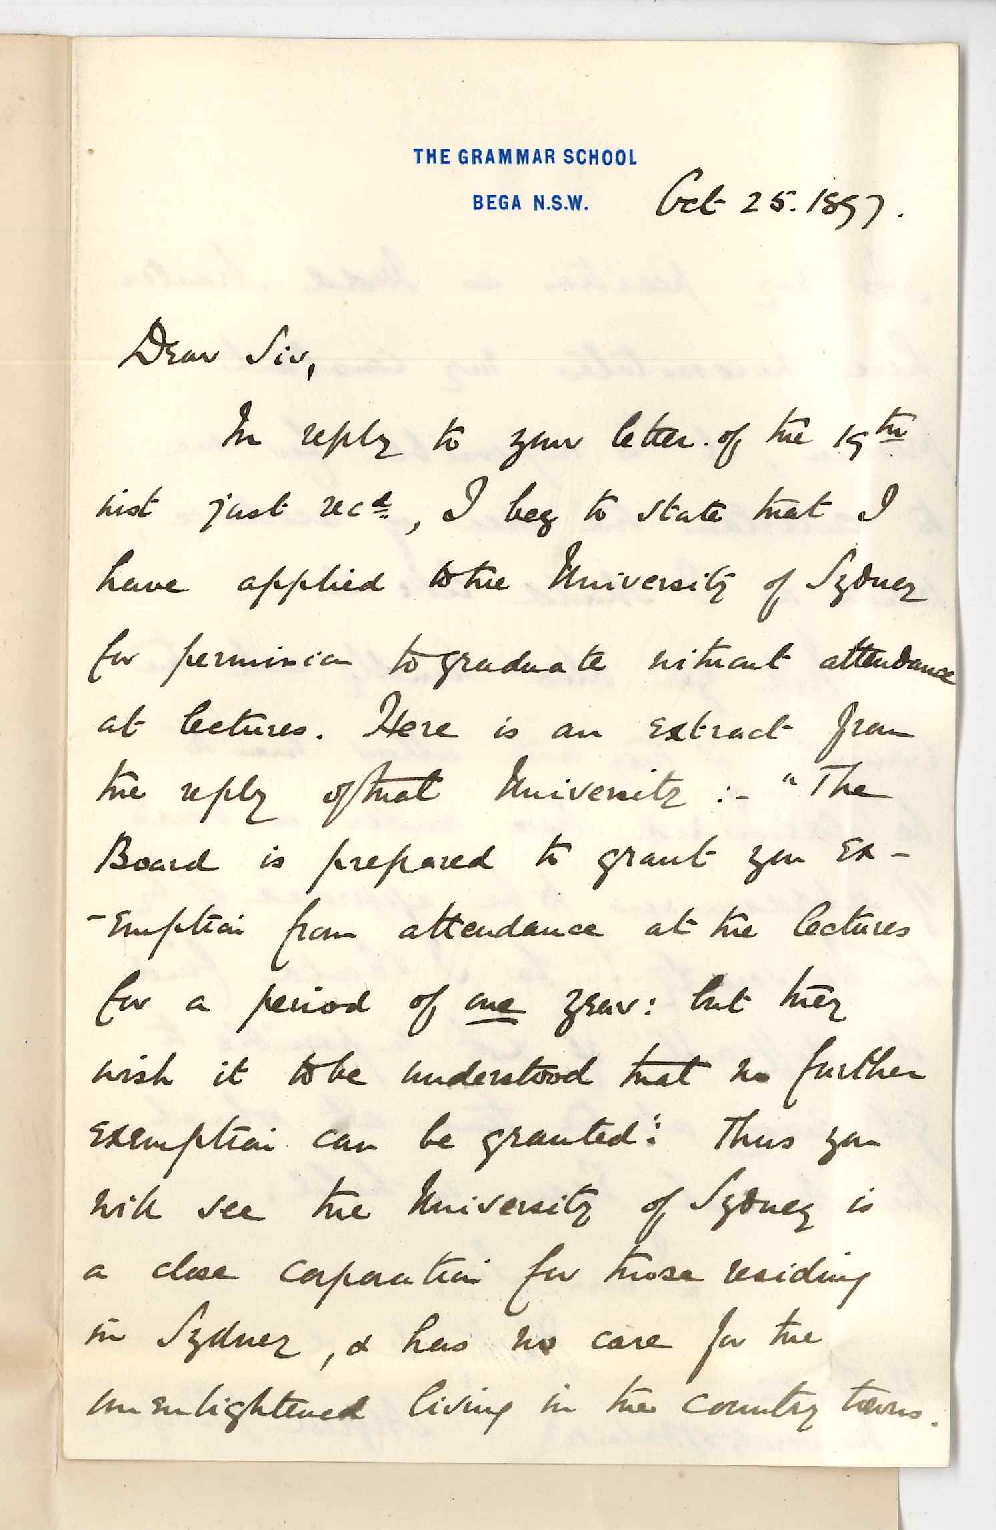 THE GRAMMAR SCHOOL
BEGA N.S.W. Oct 25. 1897.
Dear Sir,
In reply to your letter of the 19th
inst just recd, I beg to state that I
have applied to the University of Sydney
for permission to graduate without attendance
at lectures. Here is an extract from
the reply of that University :- "The
Board is prepared to grant you ex-
-emption from attendance at the lectures
for a period of one year: but they
wish it to be understood that no further
exemption can be granted": Thus you
will see the University of Sydney is
a close corporation for those residing
in Sydney, & has no care for the
unenlightened living in the country towns.